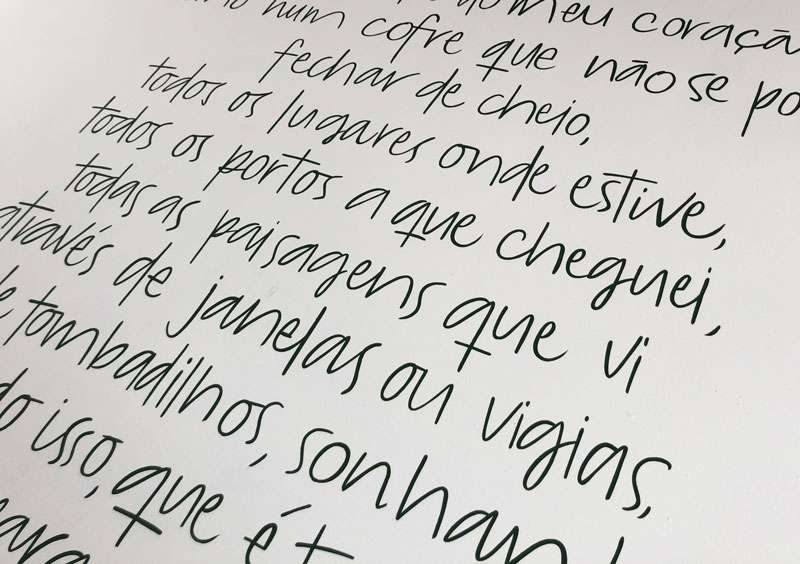 do meu coração
num cofre que não se po
fechar de cheio,
todos os lugares onde estive,
todos os portos a que cheguei,
todas as paisagens que vi
através de janelas ou vigias,
e tombadilhos, sonhan
do isso, que é t
para